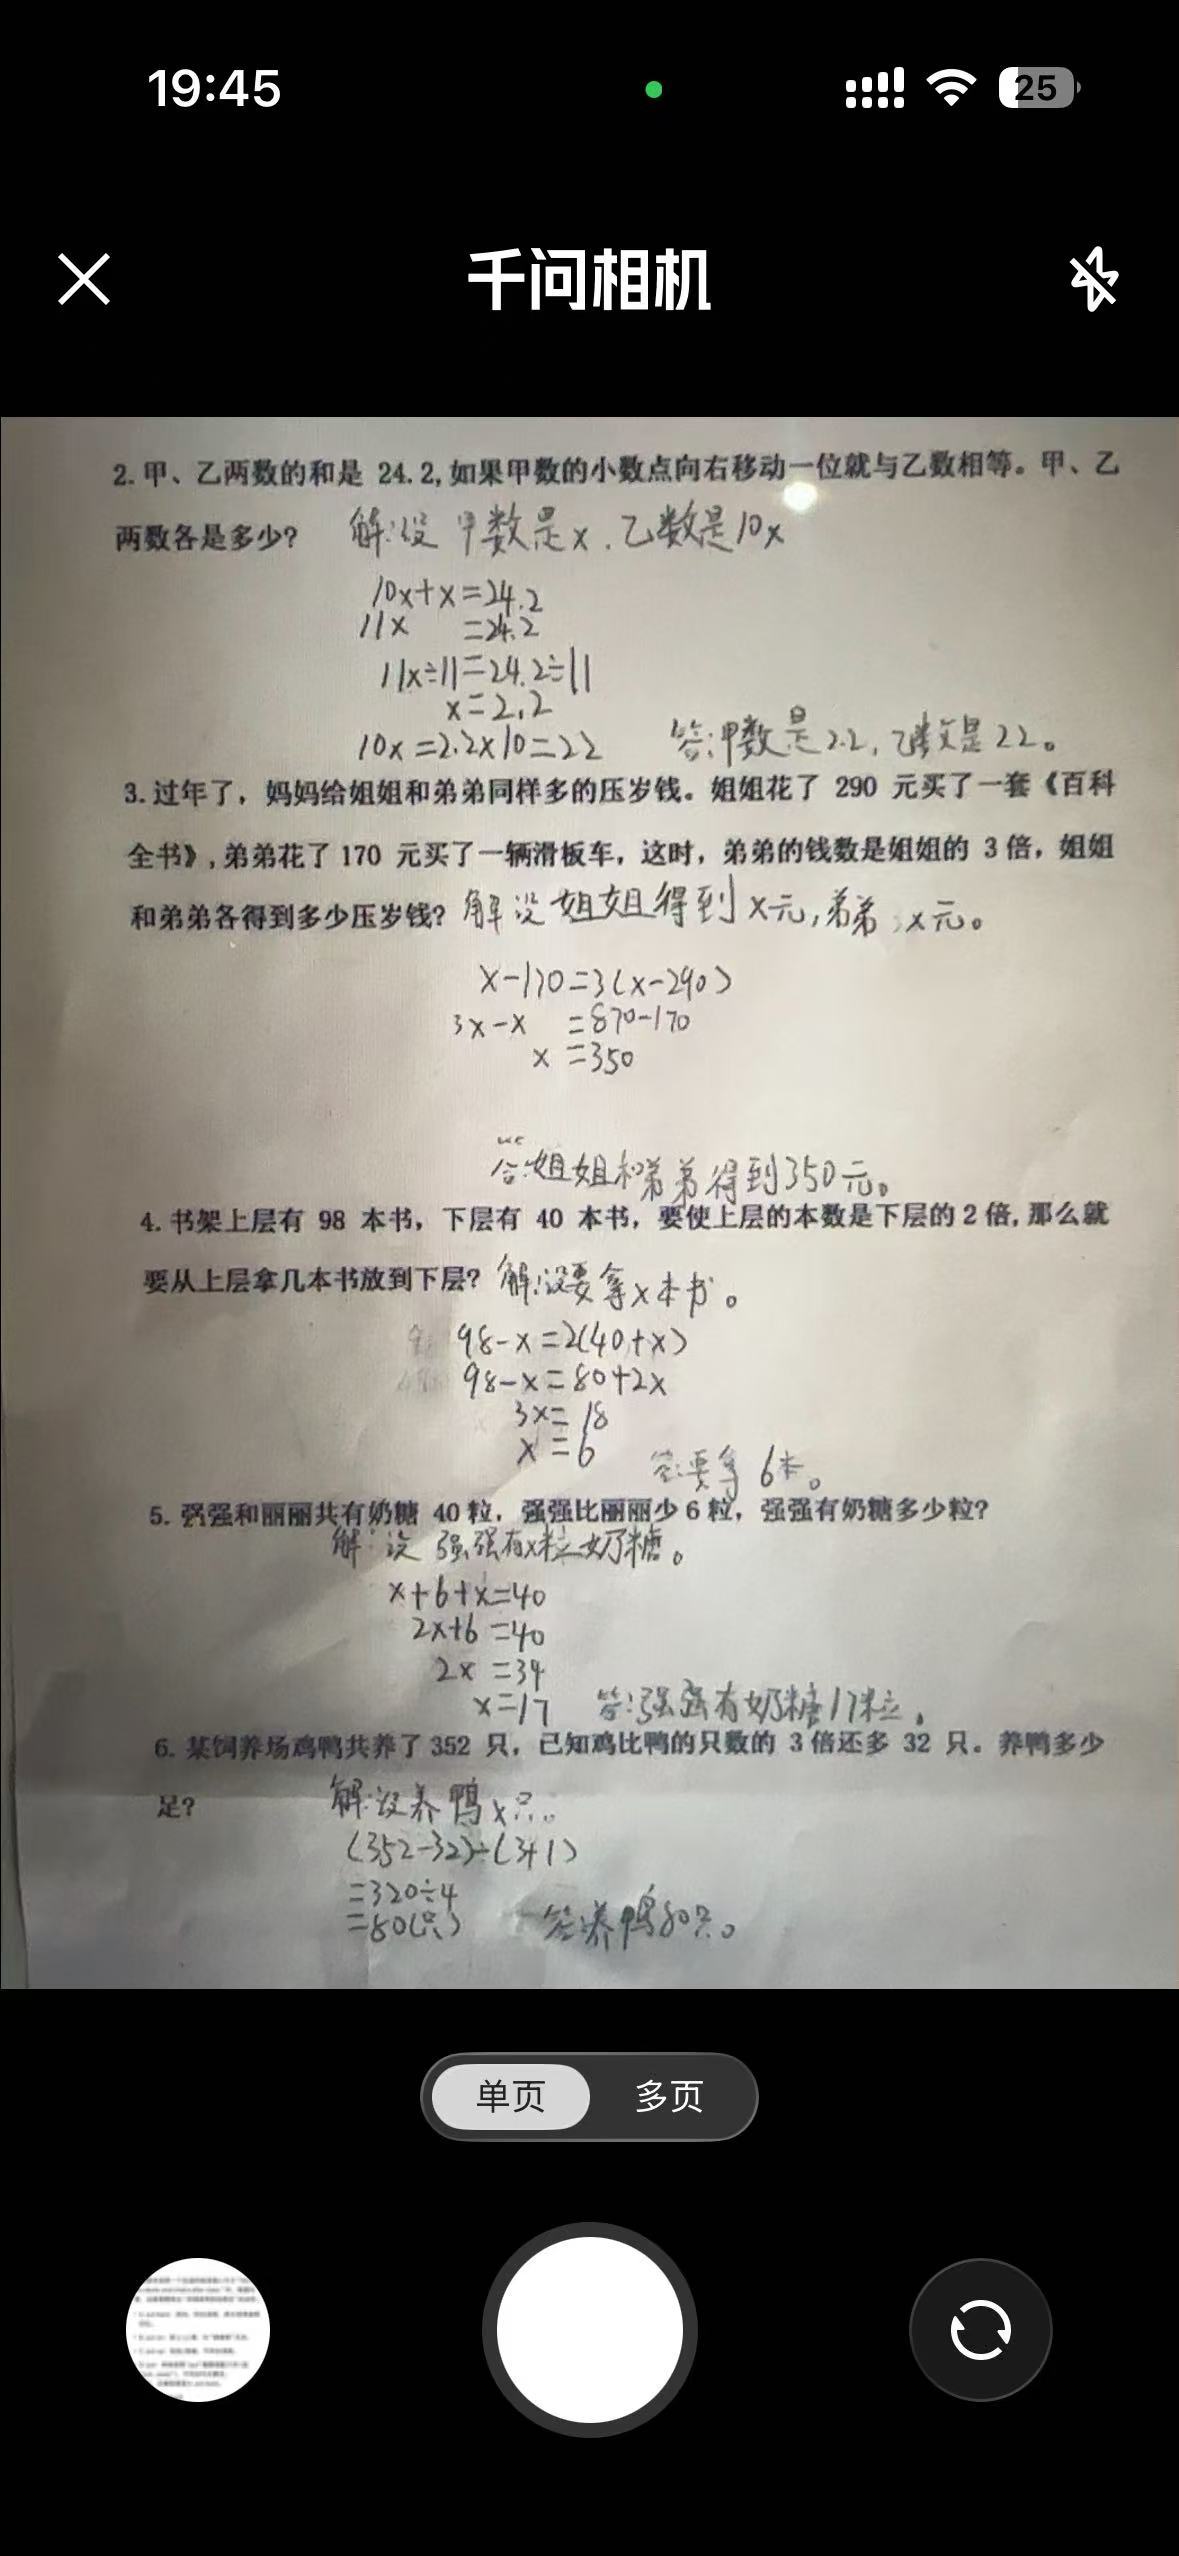 19:45
25
千问相机
2. 甲、乙两数的和是 24.2, 如果甲数的小数点向右移动一位就与乙数相等。甲、乙
两数各是多少? 解:设 甲数是x. 乙数是10x
10x+x=24.2
11x =24.2
11x÷11=24.2÷11
x=2.2
10x=2.2x10=22 答:甲数是2.2, 乙数是22。
3. 过年了，妈妈给姐姐和弟弟同样多的压岁钱。姐姐花了 290 元买了一套《百科
全书》, 弟弟花了 170 元买了一辆滑板车，这时，弟弟的钱数是姐姐的 3 倍，姐姐
和弟弟各得到多少压岁钱? 解 设 姐姐得到x元,弟弟 x元。
x-170=3(x-290)
3x-x =870-170
x =350
答:姐姐和弟弟得到350元。
4. 书架上层有 98 本书，下层有 40 本书，要使上层的本数是下层的 2 倍, 那么就
要从上层拿几本书放到下层? 解:设要拿x本书。
98-x=2(40+x)
98-x=80+2x
3x= 18
x =6 答:要拿 6本。
5. 强强和丽丽共有奶糖 40 粒，强强比丽丽少 6 粒，强强有奶糖多少粒?
解:设 强强有x粒奶糖。
x+6+x=40
2x+6 =40
2x =34
x=17 答:强强有奶糖17粒.
6. 某饲养场鸡鸭共养了 352 只，已知鸡比鸭的只数的 3 倍还多 32 只。养鸭多少
足? 解:设养鸭x只.
(352-32)÷(3+1)
=320÷4
=80(只) 答:养鸭80只。
单页 多页